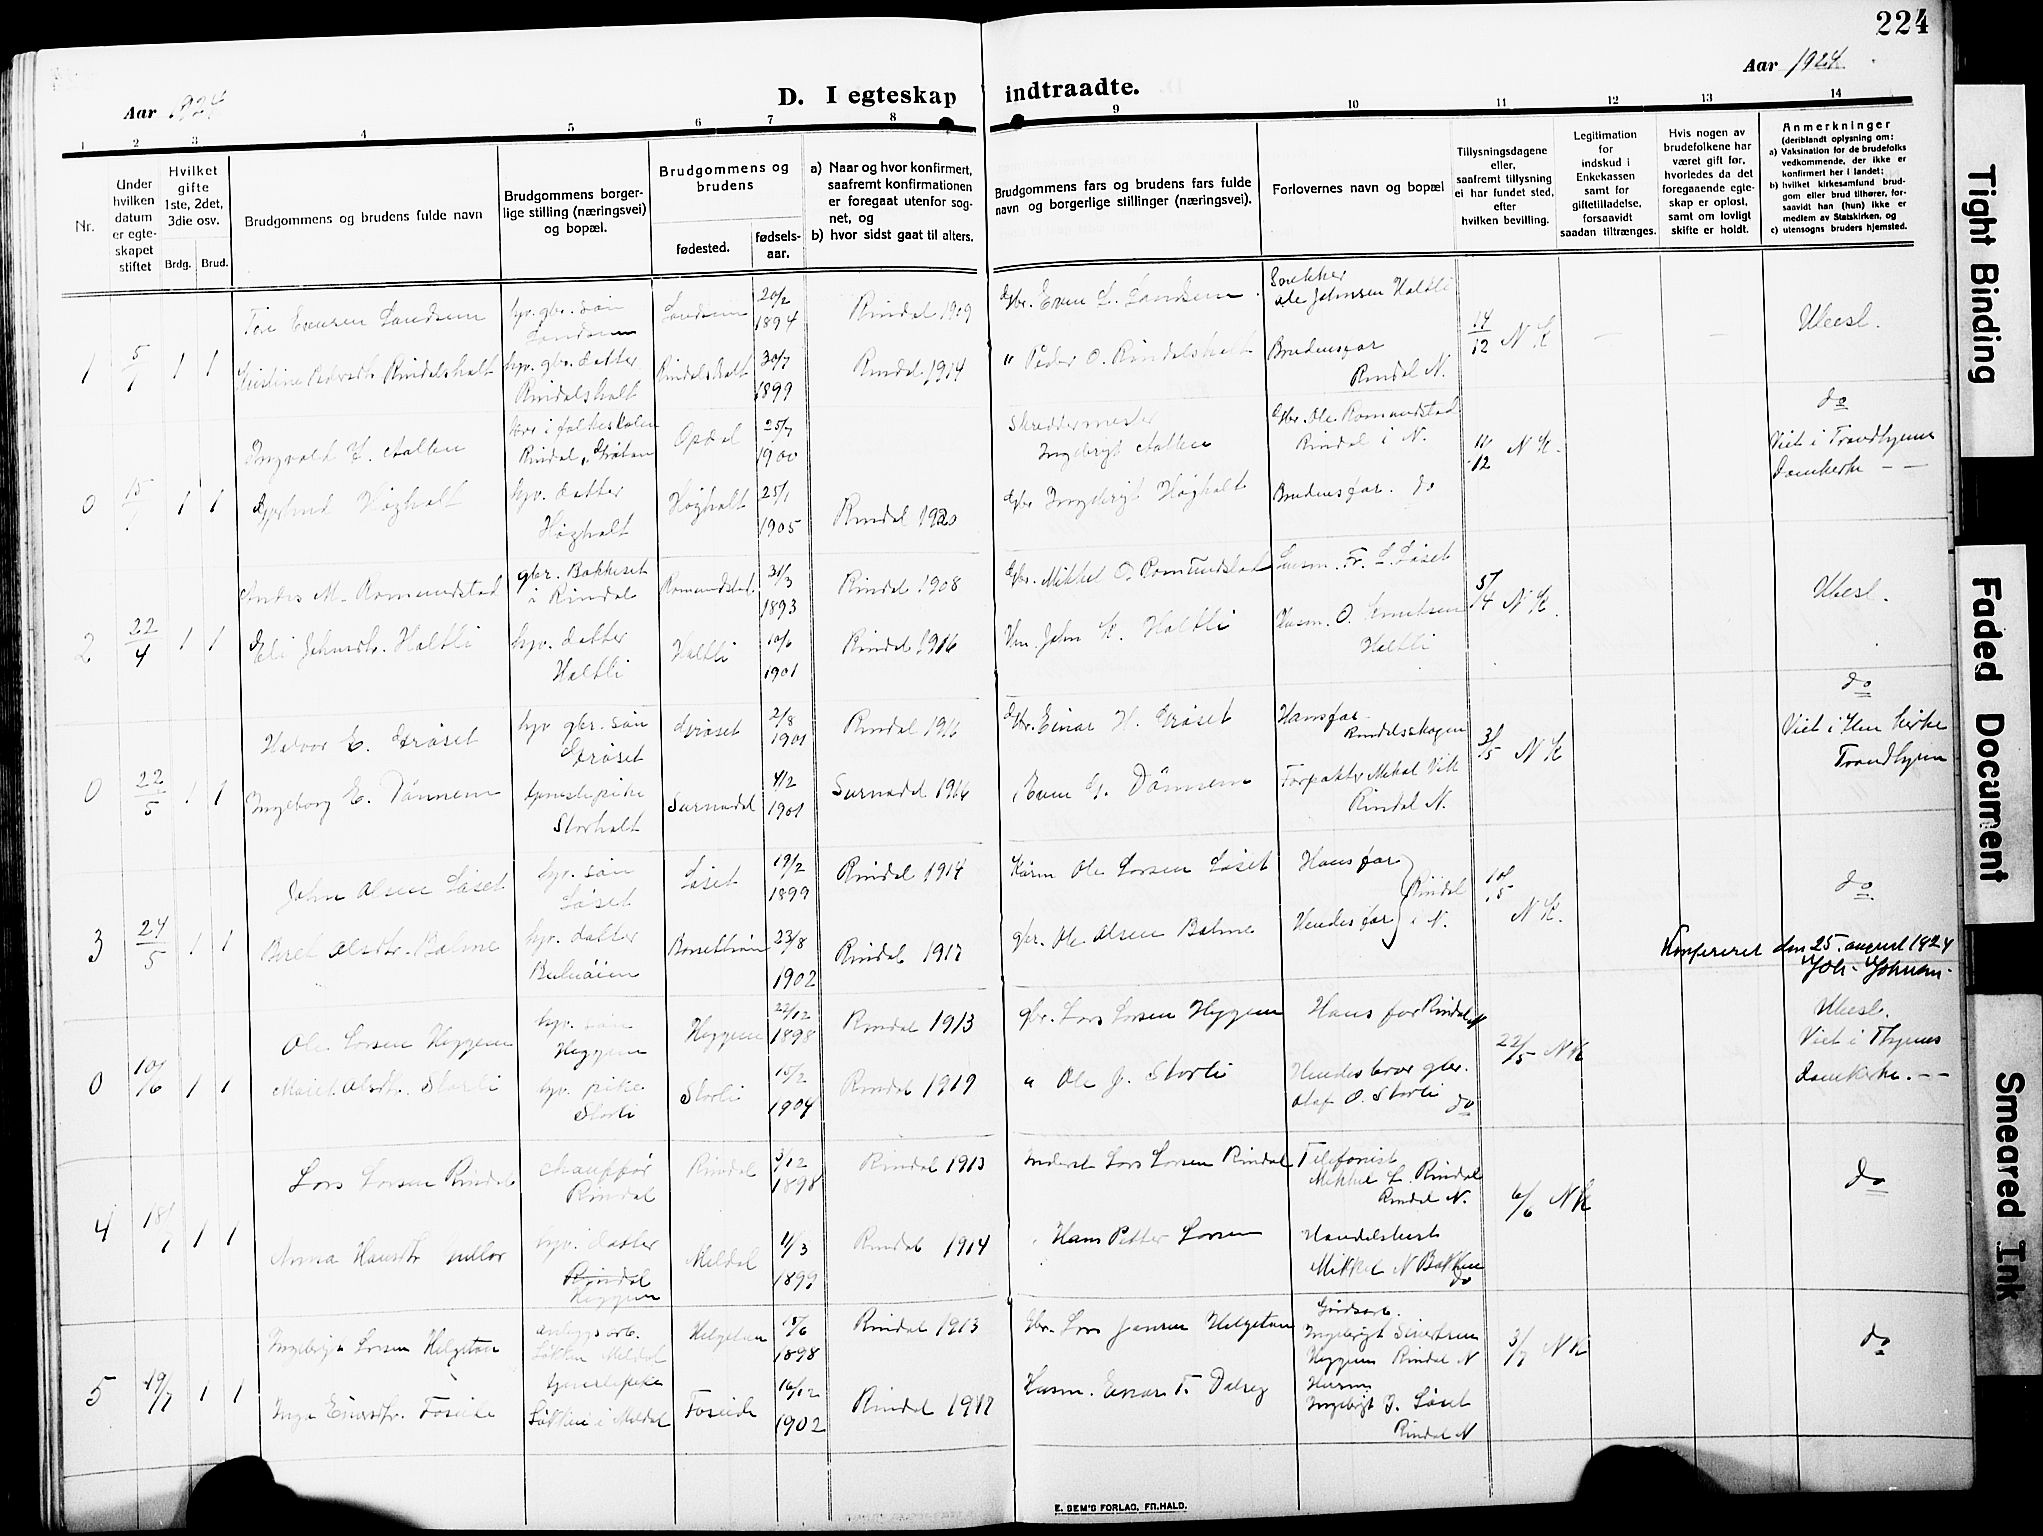 224
Aar 1924
D. I egteskap indtraadte.
Aar 1924
1 2 3 4 5 6 7 8 9 10 11 12 13 14
Nr.
Under hvilken datum er egte-skapet stiftet
Hvilket gifte 1ste, 2det, 3die osv.
Brdg. Brud.
Brudgommens og brudens fulde navn
Brudgommens borger-lige stilling (næringsvei) og bopæl.
Brudgommens og brudens
fødested.
fødsels-aar.
a) Naar og hvor konfirmert, saafremt konfirmationen er foregaat utenfor sog-net, og
b) hvor sidst gaat til alters.
Brudgommens fars og brudens fars fulde navn og borgerlige stillinger (næringsvei).
Forlovernes navn og bopæl
Tillysningsdagene eller, saafremt tillysning ei har fundet sted, efter hvilken bevilling.
Legitimation for indskud i Enkekassen samt for giftetilladelse, forsaavidt saadan tiltrænges.
Hvis nogen av brudefolkene har været gift før, hvorledes da det foregaaende egte-skap er opløst, samt om lovligt skifte er holdt.
Anmerkninger
(deriblandt oplysning om:
a) Vaksination for de brudefolks vedkommende, der ikke er konfirmert her i landet;
b) hvilket kirkesamfund brud-gom eller brud tilhører, for-saavidt han (hun) ikke er medlem av Statskirken, og
c) utensogns bruders hjemsted.
1 5/1 1 1
Evensen Landsem
gbr. søn Landsem
Landsem 20/2 1894
Rindal 1909
Gbr. Even L. Landsem
Ole Johnsen Haltli
14/12 N K
Ueesl.
Kristine Pedersdtr. Rindalsholt
gbr. datter Rindalsholt
Rindalsholt 30/7 1899
Rindal 1914
" Peder O. Rindalsholt
Brudensfar Rindal N.
0 15/1 1 1
Ingvald Aalbu
i folkeskolen Rindal
Opdal 25/7 1900
Skreddermester Ingebrigt Aalbu
Gbr. Ole Romundstad Rindal i N.
11/12 N K.
do
Viet i Trondhjems Domkirke
Høgholt
datter Høgholt
Høgholt 25/1 1905
Rindal 1920
Gbr Ingebrigt Høgholt
Brudensfar. do
2 22/4 1 1
Anders M. Romundstad
gbr. Bakkeset i Rindal
Romundstad 31/3 1893
Rindal 1908
Gbr. Mikkel O. Romundstad
Fr. L. Løset
N K.
Ueesl.
Eli Johnsdtr. Haltli
datter Haltli
Haltli 10/6 1901
Rindal 1916
John K. Haltli
Husm. O. Knudsen Haltli
0 22/5 1 1
Halvor E. Grøset
gbr. søn Grøset
Grøset 2/8 1901
Rindal 1916
Gbr. Einar H. Grøset
Hansfar Rindalsskogen
3/5 N K
do
Viet i Ilen kirke Trondhjem
Ingeborg E. Dønnem
tjenestepike Storholt
Surnadal 4/2 1901
Surnadal 1916
Even G. Dønnem
Forpakter Mikal Vik Rindal N.
3 24/5 1 1
John Olsen Løset
søn Løset
Løset 19/2 1899
Rindal 1914
Ole Larsen Løset
Hansfar
Rindal i N.
10/5 N K.
do
Beret Olsdtr. Bolme
datter
23/8 1902
Rindal 1917
gbr. Ole Olsen Bolme
Hendesfar
Konfereret den 25. august 1924
Joh. Johnsen
0 10/6 1 1
Ole Larsen Heggem
søn Heggem
Heggem 22/12 1898
Rindal 1913
gbr. Lars Larsen Heggem
Hans far Rindal N
22/5 N K
Ueesl.
Viet i Thjems Domkirke.
Marit Olsdtr. Storli
pike Storli
Storli 10/2 1904
Rindal 1919
" Ole J. Storli
Hendes bror gbr. Olaf O. Storli do
4 18/ 1 1
Lars Larsen Rindal
Chauffør Rindal
Rindal 3/12 1898
Rindal 1913
Lars Larsen Rindal
Telefonist Mikkel L. Rindal Rindal N.
6/6 N K
do
Anna Hansdtr.
datter Rindal Heggem
Meldal 1/3 1899
Rindal 1914
Hans Petter Larsen
Mikkel N Bakken do
5 19/7 1 1
Ingebrigt Larsen Helgetun
anlegsarb. Løkken Meldal
Helgetun 15/6 1898
Rindal 1913
Gbr. Lars Jansen Helgetun
Gårdsarb. Ingebrigt Sivertsen Heggem Rindal N
3/7 N K
do
Inga Einarsdtr. Foseide
Tjenestepike Løkken i Meldal
Foseide 16/12 1902
Rindal 1917
Husm. Einar T. Dalseg
Husm. Ingebrigt J. Løset Rindal N
E. SEM'S FORLAG, FR.HALD.
Tight Binding
Faded Document
Smeared Ink